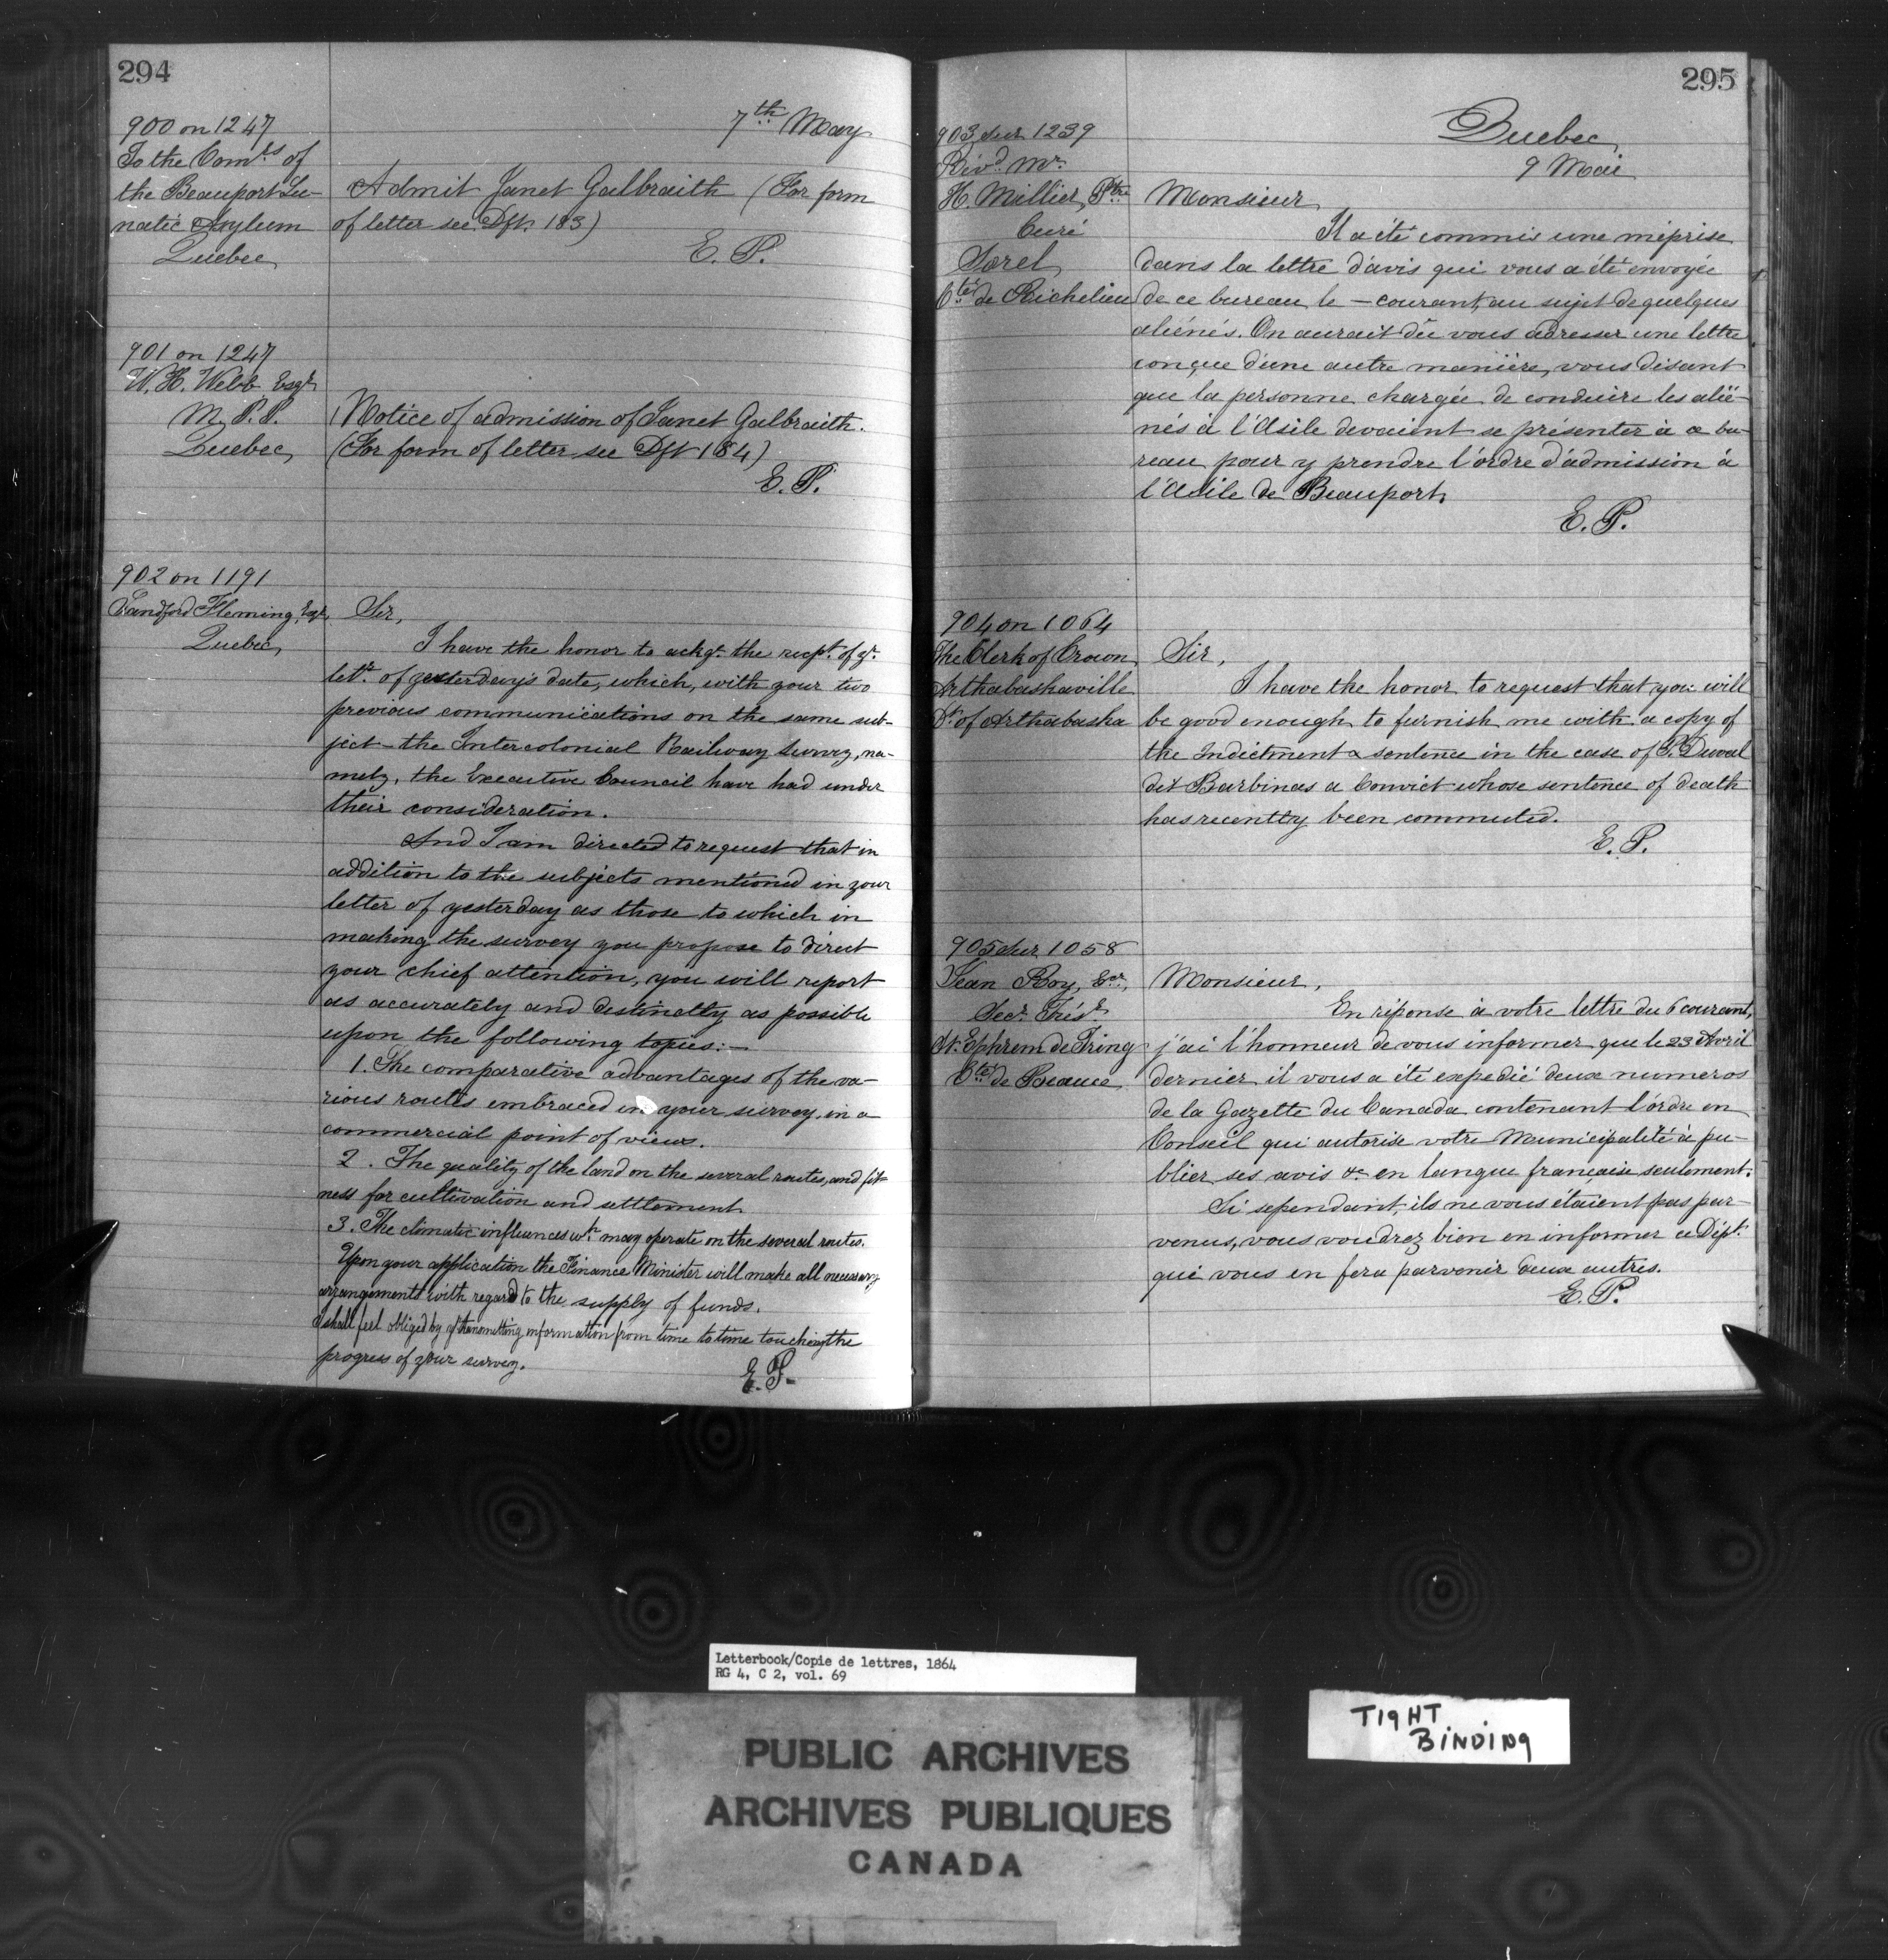 294
7th May
900 on 1247
To the Comrs of
the Beauport Lu-
natic Asylum
Quebec
Admit Janet Galbraith (For form
of letter see Dft. 183)
E. P.
901 on 1247
W. H. Webb Esqr
M. P. P.
Quebec,
Notice of admission of Janet Galbraith.
(For form of letter see Dft 184)
E. P.
902 on 1191
Sandford Fleming, Esqr,
Quebec,
Sir,
I have the honor to ackge. the recpt. of yr.
letr. of yesterday's date, which, with your two
previous communications on the same sub-
ject - the Intercolonial Railway Survey, na-
mely, the Executive Council have had under
their consideration.
And I am directed to request that in
addition to the subjects mentioned in your
letter of yesterday as those to which in
making the survey you propose to direct
your chief attention, you will report
as accurately and distinctly as possible
upon the following topics:-
1. The comparative advantages of the va-
rious routes embraced in your survey, in a
commercial point of view.
2. The quality of the land on the several routes, and fit-
ness for cultivation and settlement
3. The climatic influences wh. may operate on the several routes.
Upon your application the Finance Minister will make all necessary
arrangements with regard to the supply of funds.
I shall feel obliged by yr transmitting information from time to time touching the
progress of your survey.
E. P.
295
Quebec,
9 Mai
903 sur 1239
Révd. Mr.
H. Millier, Ptre
Curé
Sorel
Cté de Richelieu
Monsieur,
Il a été commis une méprise
dans la lettre d'avis qui vous a été envoyée
de ce bureau le - courant, au sujet de quelques
aliénés. On aurait dû vous adresser une lettre
conçue d'une autre manière, vous disant
que la personne chargée de conduire les alié-
nés à l'Asile devaient se présenter à ce bu-
reau pour y prendre l'ordre d'admission à
l'Asile de Beauport.
E. P.
904 on 1064
The Clerk of Crown,
Arthabaskaville
Dt. of Arthabaska
Sir,
I have the honor to request that you will
be good enough to furnish me with a copy of
the Indictment & sentence in the case of P. Duval
dit Barbinas a Convict whose sentence of death
has recently been commuted.
E. P.
905 sur 1058
Jean Roy, Ecr.
Secr. Trésr.
St. Ephrem de Tring
Cté de Beauce
Monsieur,
En réponse à votre lettre du 6 courant,
j'ai l'honneur de vous informer que le 23 Avril
dernier il vous a été expedié deux numeros
de la Gazette du Canada contenant l'ordre en
Conseil qui autorise votre Municipalité à pu-
blier ses avis &c en langue française seulement.
Si sependant, ils ne vous étaient pas par-
venus, vous voudrez bien en informer ce Dépt.
qui vous en fera parvenir deux autres.
E. P.
Letterbook/Copie de lettres, 1864
RG 4, C 2, vol. 69
TIGHT
BINDING
PUBLIC ARCHIVES
ARCHIVES PUBLIQUES
CANADA